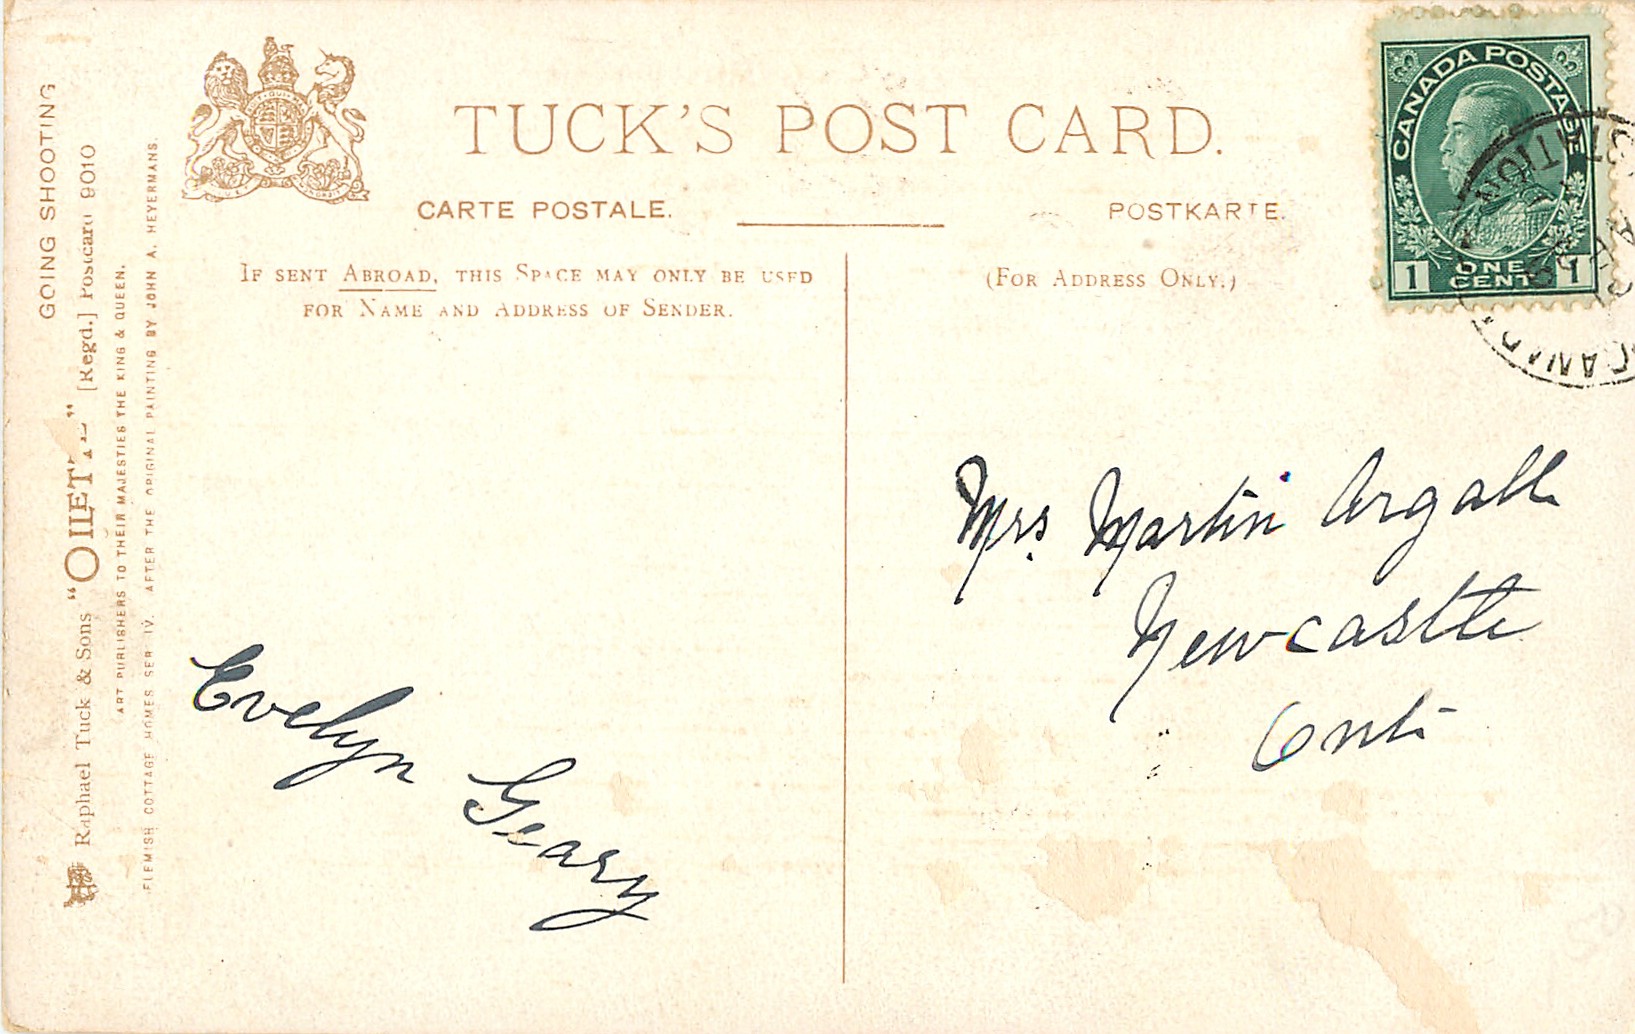 TUCK'S POST CARD.
CARTE POSTALE.
POSTKARTE.
IF SENT ABROAD, THIS SPACE MAY ONLY BE USED
FOR NAME AND ADDRESS OF SENDER.
(FOR ADDRESS ONLY.)
CANADA POSTAGE
1 ONE CENT 1
GOING SHOOTING
Raphael Tuck & Sons "OILETTE" [Regd.] Postcard 9010
ART PUBLISHERS TO THEIR MAJESTIES THE KING & QUEEN.
FLEMISH COTTAGE HOMES SER. IV. AFTER THE ORIGINAL PAINTING BY JOHN A. HEYERMANS.
Evelyn Geary
Mrs. Martin Argall
Newcastle
Ont.